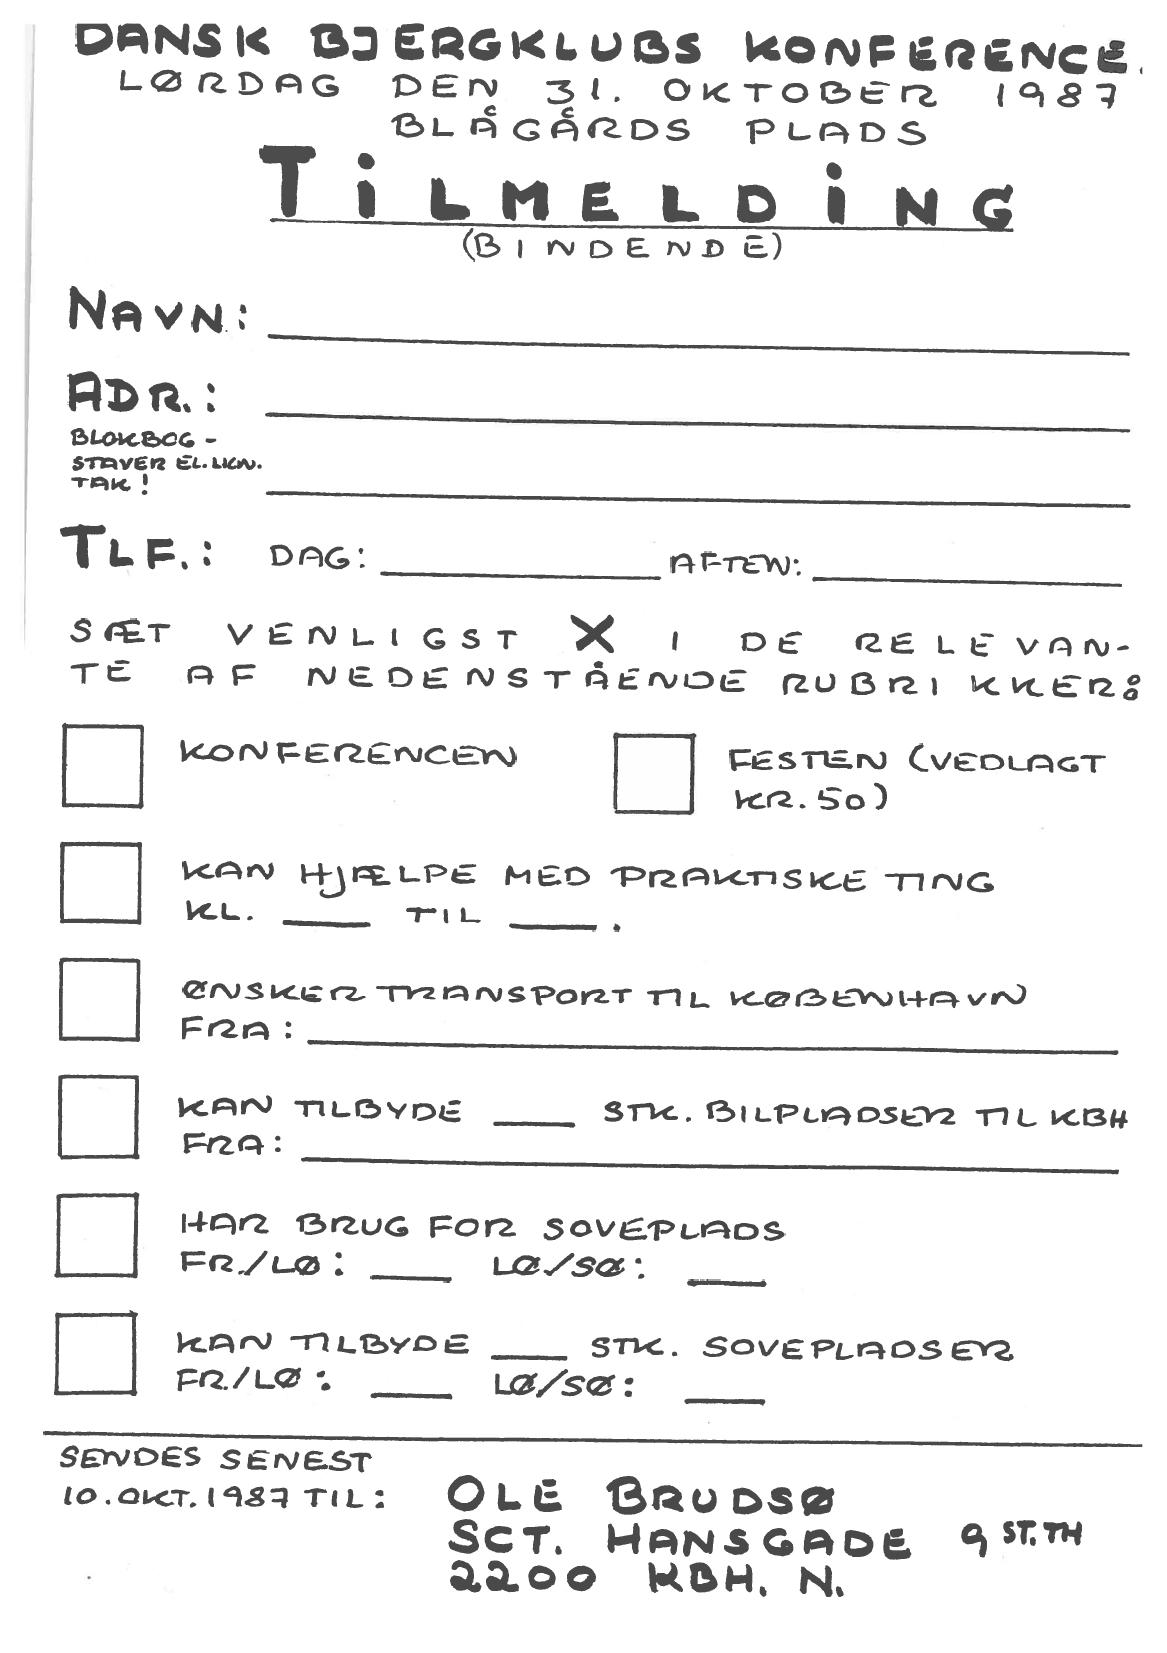 DANSK BJERGKLUBS KONFERENCE.
LØRDAG DEN 31. OKTOBER 1987
BLÅGÅRDS PLADS
TiLMELDiNG
(BINDENDE)
NAVN:
ADR.:
BLOKBOG-
STAVER EL.LIGN.
TAK!
TLF.: DAG: AFTEN:
SÆT VENLIGST X I DE RELEVAN-
TE AF NEDENSTÅENDE RUBRIKKER:
KONFERENCEN
FESTEN (VEDLAGT
KR. 50)
KAN HJÆLPE MED PRAKTISKE TING
KL. ___ TIL ___.
ØNSKER TRANSPORT TIL KØBENHAVN
FRA:
KAN TILBYDE ___ STK. BILPLADSER TIL KBH
FRA:
HAR BRUG FOR SOVEPLADS
FR./LØ: ___ LØ/SØ: ___
KAN TILBYDE ___ STK. SOVEPLADSER
FR./LØ: ___ LØ/SØ: ___
SENDES SENEST
10. OKT. 1987 TIL:
OLE BRUDSØ
SCT. HANSGADE 9 ST. TH
2200 KBH. N.